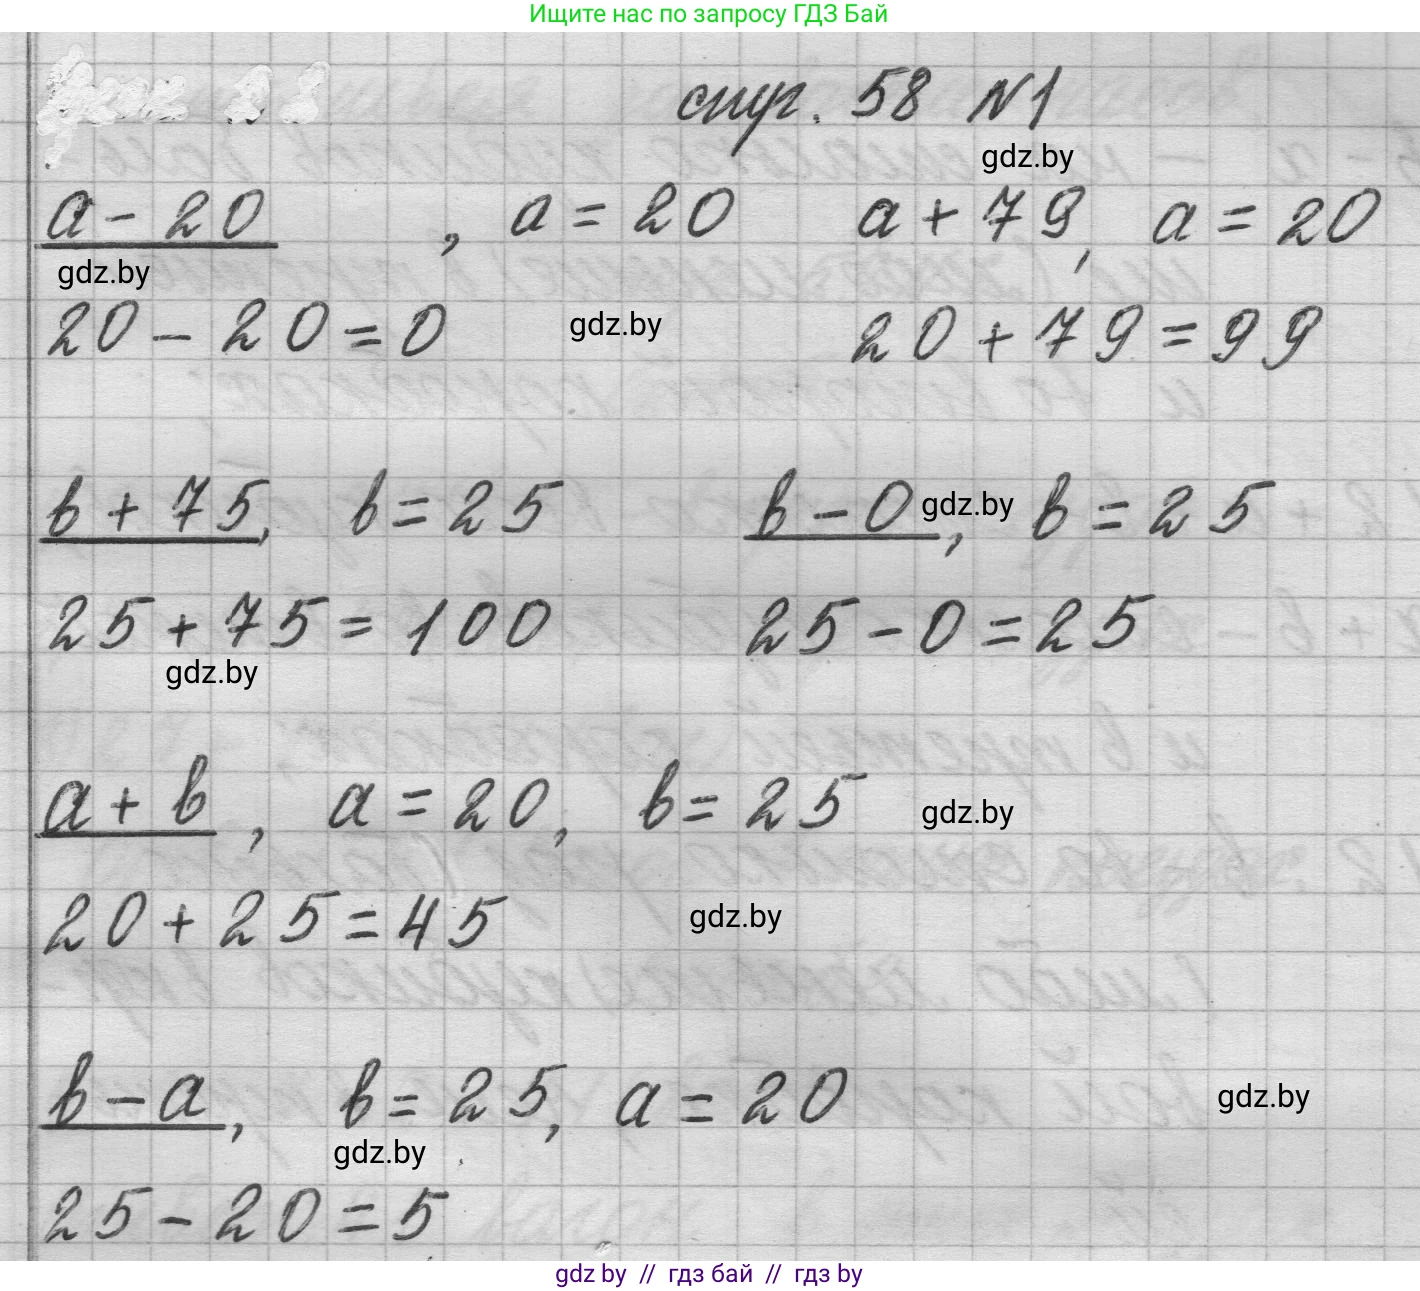 Ищите нас по запросу ГДЗ Бай
стр. 58 №1
gdz.by
a - 20 , a = 20 a + 79, a = 20
gdz.by
20 - 20 = 0 gdz.by 20 + 79 = 99
b + 75, b = 25 b - 0, gdz.by b = 25
25 + 75 = 100 25 - 0 = 25
gdz.by
a + b, a = 20, b = 25 gdz.by
20 + 25 = 45 gdz.by
b - a, b = 25, a = 20 gdz.by
gdz.by
25 - 20 = 5
gdz by // гдз бай // гдз by